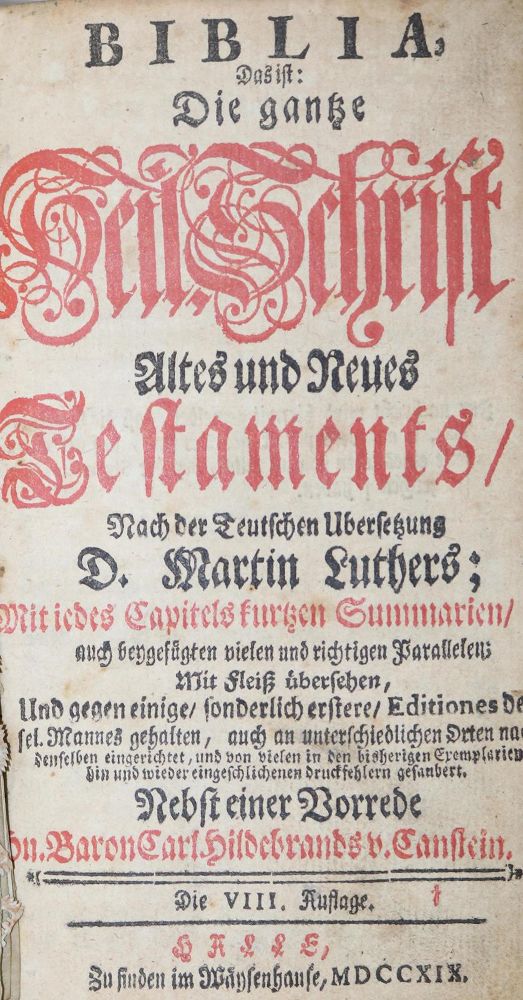 BIBLIA,
Das ist:
Die gantze
Heil. Schrift
Altes und Neues
Testaments/
Nach der Teutschen Ubersetzung
D. Martin Luthers;
Mit iedes Capitels kurtzen Summarien/
auch beygefügten vielen und richtigen Parallelen:
Mit Fleiß übersehen,
Und gegen einige/ sonderlich erstere/ Editiones de
sel. Mannes gehalten, auch an unterschiedlichen Orten nac
denselben eingerichtet, und von vielen in den bisherigen Exemplarien
hin und wieder eingeschlichenen druckfehlern gesaubert.
Nebst einer Vorrede
Hn. Baron Carl Hildebrands v. Canstein.
Die VIII. Auflage.
HALLE,
Zu finden im Wäysenhause, MDCCXIX.